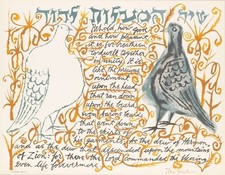 שיר המעלות לדוד
Behold how good
and how pleasant
it is for brethren
to dwell together
in unity. It is
like the precious
ointment
upon the head
that ran down
upon the beard
even Aarons beard
that went down
to the skirts of
his garments: As the dew of Hermon
and as the dew that descended upon the mountains
of Zion: for there the Lord commanded the blessing
even life forevermore